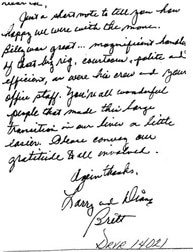 Dear Mr.
Just a short note to tell you how
happy we were with the move.
Billy was great... magnificent handler
of that big rig, courteous, polite and
efficient, as were his crew and your
office staff. You're all wonderful
people that made this large
transition in our lives a little
easier. Please convey our
gratitude to all involved.
Again thanks,
Larry and Diane
Britt